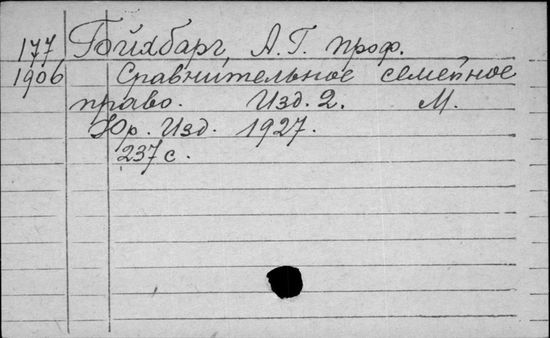 177 Гойхбарг, А. Г. проф.
1906 Сравнительное семейное
право. Изд. 2. М.
Юр. Изд. 1927.
237 с.